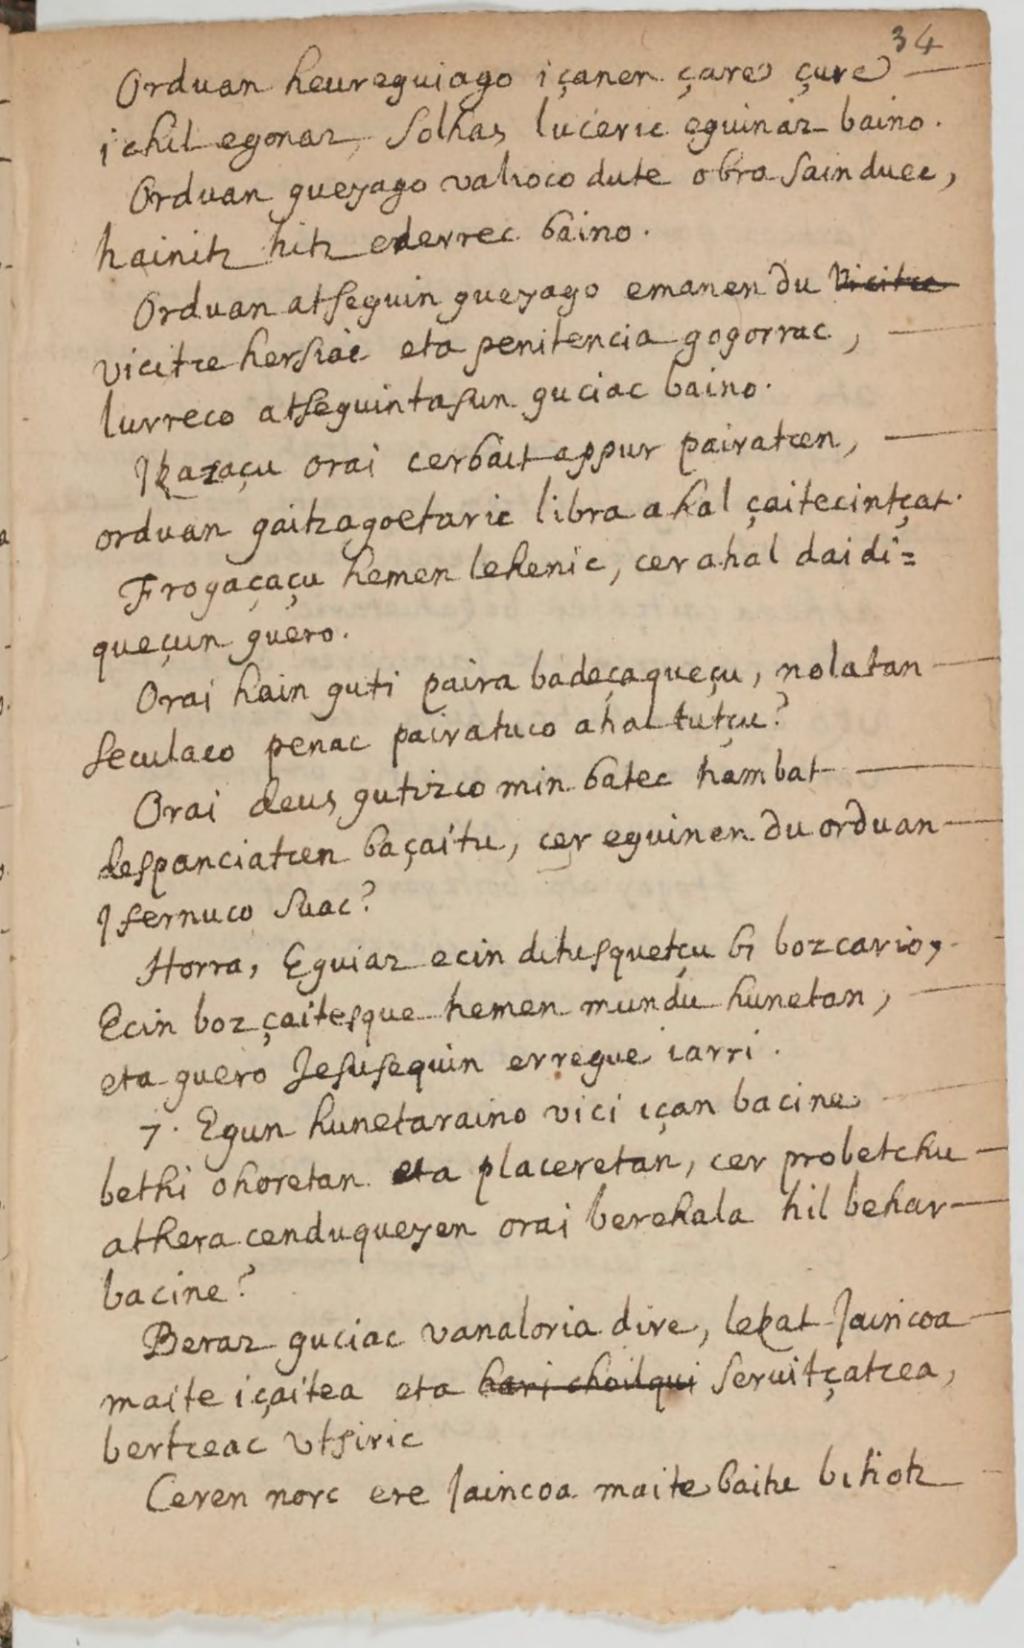 34
Orduan heureguiago içanen çare çure
ichil egonaz, solhas luceric eguinaz baino.
Orduan gueyago valioco dute obra sainduec,
hainitz hitz ederrec baino.
Orduan atseguin gueyago emanen du vicitce
vicitce hersiac eta penitencia gogorrac,
lurreco atseguintasun guciac baino.
Ikazaçu orai cerbait appur pairatcen,
orduan gaitzagoetaric libra ahal çaitecintçat.
Frogaçaçu hemen lehenic, cer ahal daidi=
queçun guero.
Orai hain guti paira badeçaqueçu, nolatan
seculaco penac pairatuco ahal tutçu?
Orai deus gutizco min batec hambat
despanciatcen baçaitu, cer eguinen du orduan
Ifernuco suac?
Horra, Eguiaz ecin ditusquetçu bi bozcario,
Ecin boz çaitesque hemen mundu hunetan,
eta guero Jesusequin erregue iarri.
7. Egun hunetaraino vici içan bacine
bethi ohoretan eta placeretan, cer probetchu
athera cenduqueyen orai berehala hil behar
bacine?
Beraz guciac vanaloria dire, lekat Jaincoa
maite içaitea eta hari choilqui seruitçatcea,
bertceac vtsiric
Ceren norc ere Jaincoa maite baitu bihotz